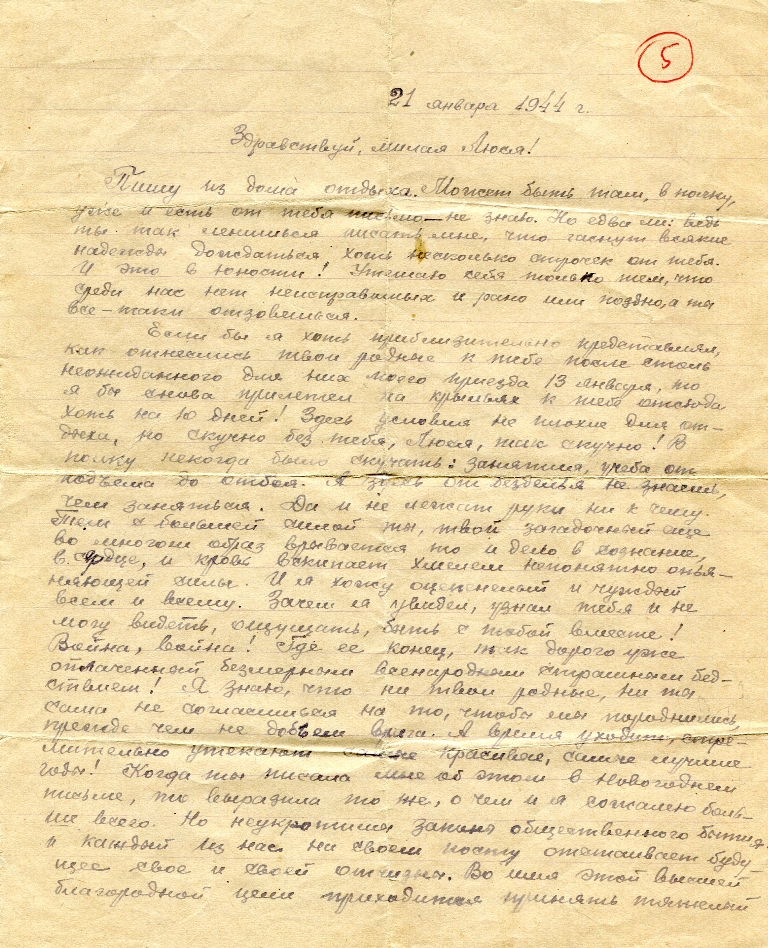 5
21 января 1944 г.
Здравствуй, милая Люся!
Пишу из дома отдыха. Может быть там, в полку,
уже и есть от тебя письмо – не знаю. Но едва ли: ведь
ты так ленишься писать мне, что гаснут всякие
надежды дождаться хоть несколько строчек от тебя.
И это в юности! Утешаю себя только тем, что
среди нас нет неисправимых и рано или поздно, а ты
все-таки отзовешься.
Если бы я хоть приблизительно представлял,
как отнеслись твои родные к тебе после столь
неожиданного для них моего приезда 13 января, то
я бы снова прилетел на крыльях к тебе отсюда
хоть на 10 дней! Здесь условия не плохие для от-
дыха, но скучно без тебя, Люся, так скучно! В
полку некогда было скучать: занятия, учеба от
подъема до отбоя. А здесь от безделья не знаешь,
чем заняться. Да и не лежат руки ни к чему.
Тем с большей силой ты, твой загадочный еще
во многом образ врывается то и дело в сознание,
в сердце, и кровь вскипает хмелем непонятно опья-
няющей силы. И я хожу оцепенелый и чуждый
всем и всему. Зачем я увидел, узнал тебя и не
могу видеть, ощущать, быть с тобой вместе!
Война, война! Где ее конец, так дорого уже
оплаченный безмерным всенародным страшным бед-
ствием! Я знаю, что ни твои родные, ни ты
сама не согласишься на то, чтобы мы породнились,
прежде чем не добьем врага. А время уходит, стре-
мительно утекают красивые, самые лучшие
годы! Когда ты писала мне об этом в Новогоднем
письме, ты выразила то же, о чем и я сожалею боль-
ше всего. Но неукротимы законы общественного бытия
и каждый из нас на своем посту отстаивает буду-
щее свое и своей отчизны. Во имя этой высшей
благородной цели приходится принять тяжелый